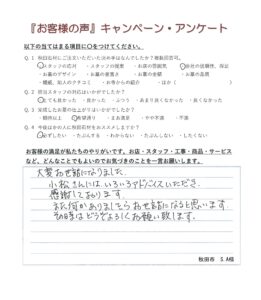 『お客様の声』キャンペーン・アンケート
以下の当てはまる項目に○をつけてください。
Q.1 秋田石材にご注文いただいた決め手はなんでしたか？複数回答可。
・スタッフの応対 ・スタッフの提案 ・お店の雰囲気 ・会社の信頼性、保証
・お墓のデザイン ・お墓の産業大 ・お墓の金額 ・お墓の品質
・親戚、知人のクチコミ ・お寺からの紹介 ・ほか（ ）
Q.2 担当スタッフの対応はいかがでしたか？
・とても良かった ・良かった ・ふつう ・あまり良くなかった ・良くなかった
Q.3 完成したお墓の仕上がりはいかがでしたか？
・期待以上 ・希望通り ・まあ満足 ・やや不満 ・不満
Q.4 今後ほかの人に秋田石材をおススメしますか？
・必ずしたい ・たぶんする ・わからない ・たぶんしない ・したくない
お客様の満足が私たちのやりがいです。お店・スタッフ・工事・商品・サービス
など、どんなことでもよいのでお気づきのことを一言お願いします。
大変お世話になりました。
小松さんにはいろいろアドバイスいただき、
感謝しております。
また何かありましたらお世話になると思います。
その時はどうぞよろしくお願い致します。
秋田市 S.A様